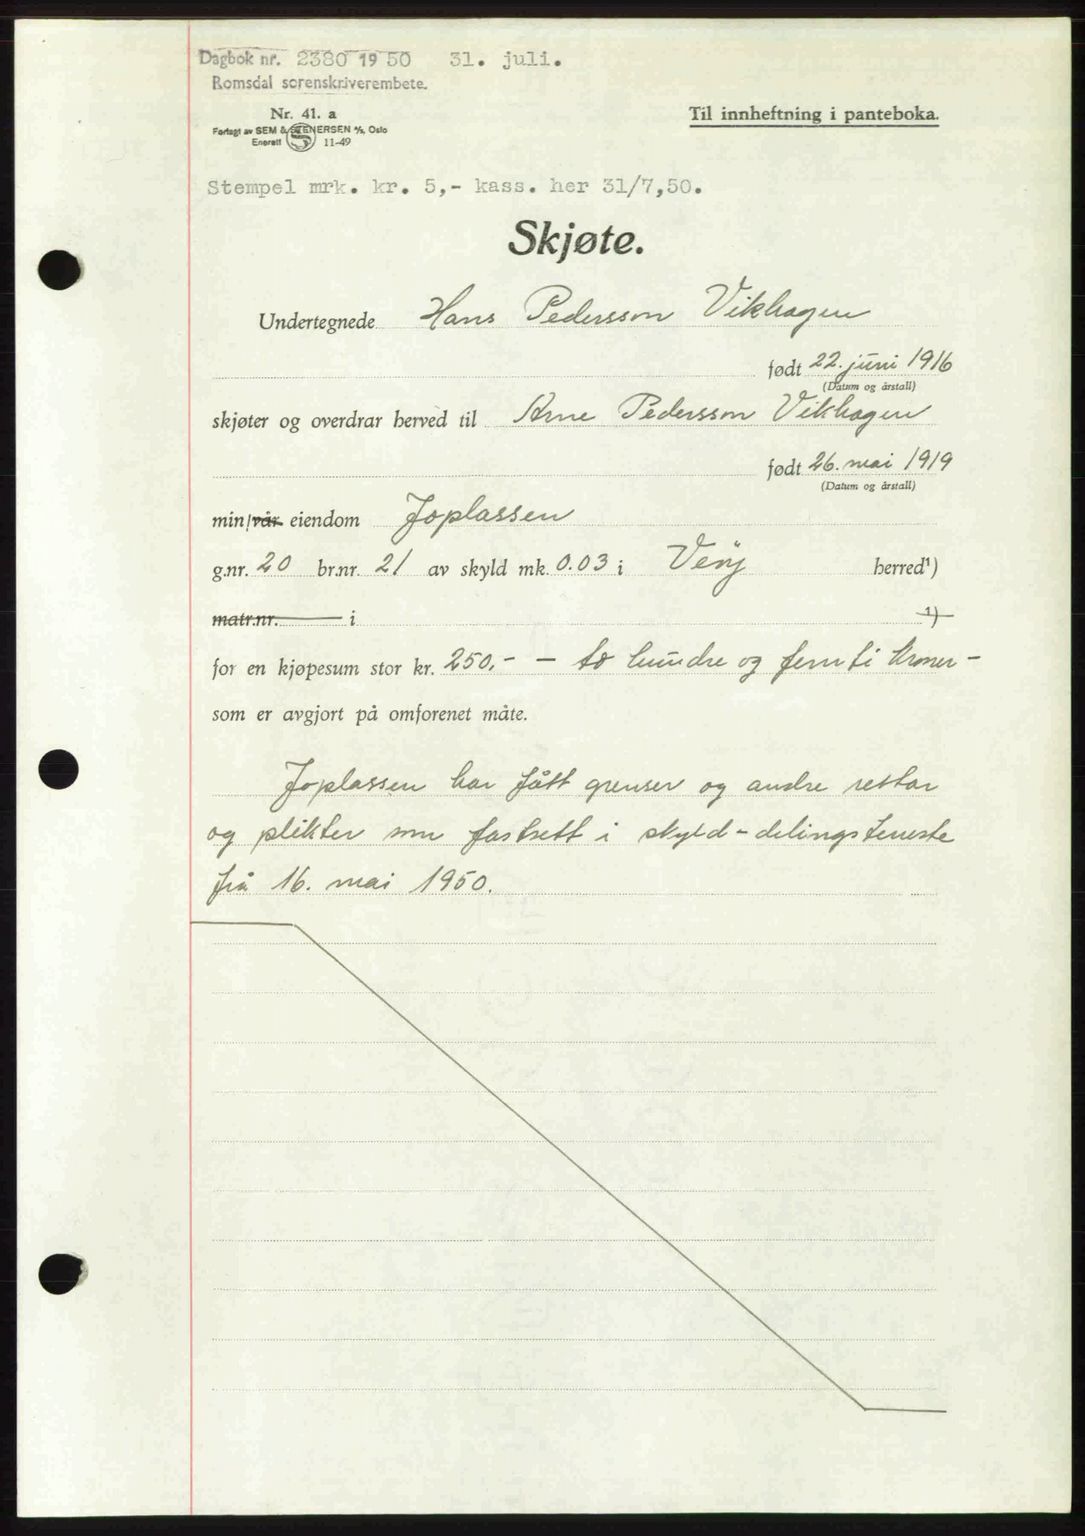 Dagbok nr. 2380 19 50 31. juli.
Romsdal sorenskriverembete.
Nr. 41. a
Forlagt av SEM & STENERSEN A/S, Oslo
Enerett 11-49
Til innheftning i panteboka.
Stempel mrk. kr. 5,- kass. her 31/7,50.
Skjøte.
Undertegnede Hans Pedersson Vikhagen
født 22. juni 1916
(Datum og årstall)
skjøter og overdrar herved til Arne Pedersson Vikhagen
født 26. mai 1919
(Datum og årstall)
min/vår eiendom Joplassen
g.nr. 20 br.nr. 21 av skyld mk. 0.03 i Vøy herred¹)
matr.nr. i ¹)
for en kjøpesum stor kr. 250,- - to hundre og femti kroner -
som er avgjort på omforenet måte.
Joplassen har fått grenser og andre rettar
og plikter som fastsett i skyld-delingsteneste
frå 16. mai 1950.